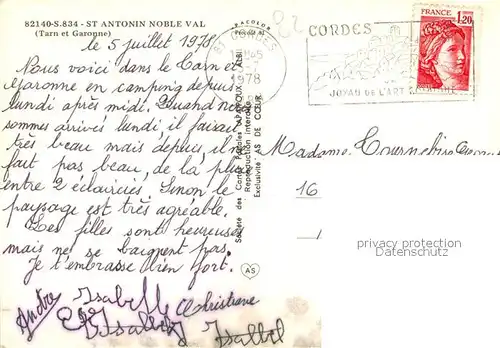 82140-S-834 - ST ANTONIN NOBLE VAL
(Tarn et Garonne)
le 5 juillet 1978
Nous voici dans le Tarn et
Garonne en camping depuis
lundi après midi. Quand nous
sommes arrivés lundi il faisait
très beau mais depuis il ne
fait pas beau, de la pluie
entre 2 éclaircies. Sinon le
paysage est très agréable.
Les filles sont heureuses
mais ne se baignent pas.
Je t'embrasse bien fort.
Andre
Isabelle
Christiane
Isabel
Société des Cartes Postales APA-POUX - ALBI
Reproduction interdite
Exclusivité AS DE CŒUR
AS
CORDES
1978
CORDES
JOYAU DE L'ART
FRANCE
1,20
Madame
16
privacy protection
Datenschutz